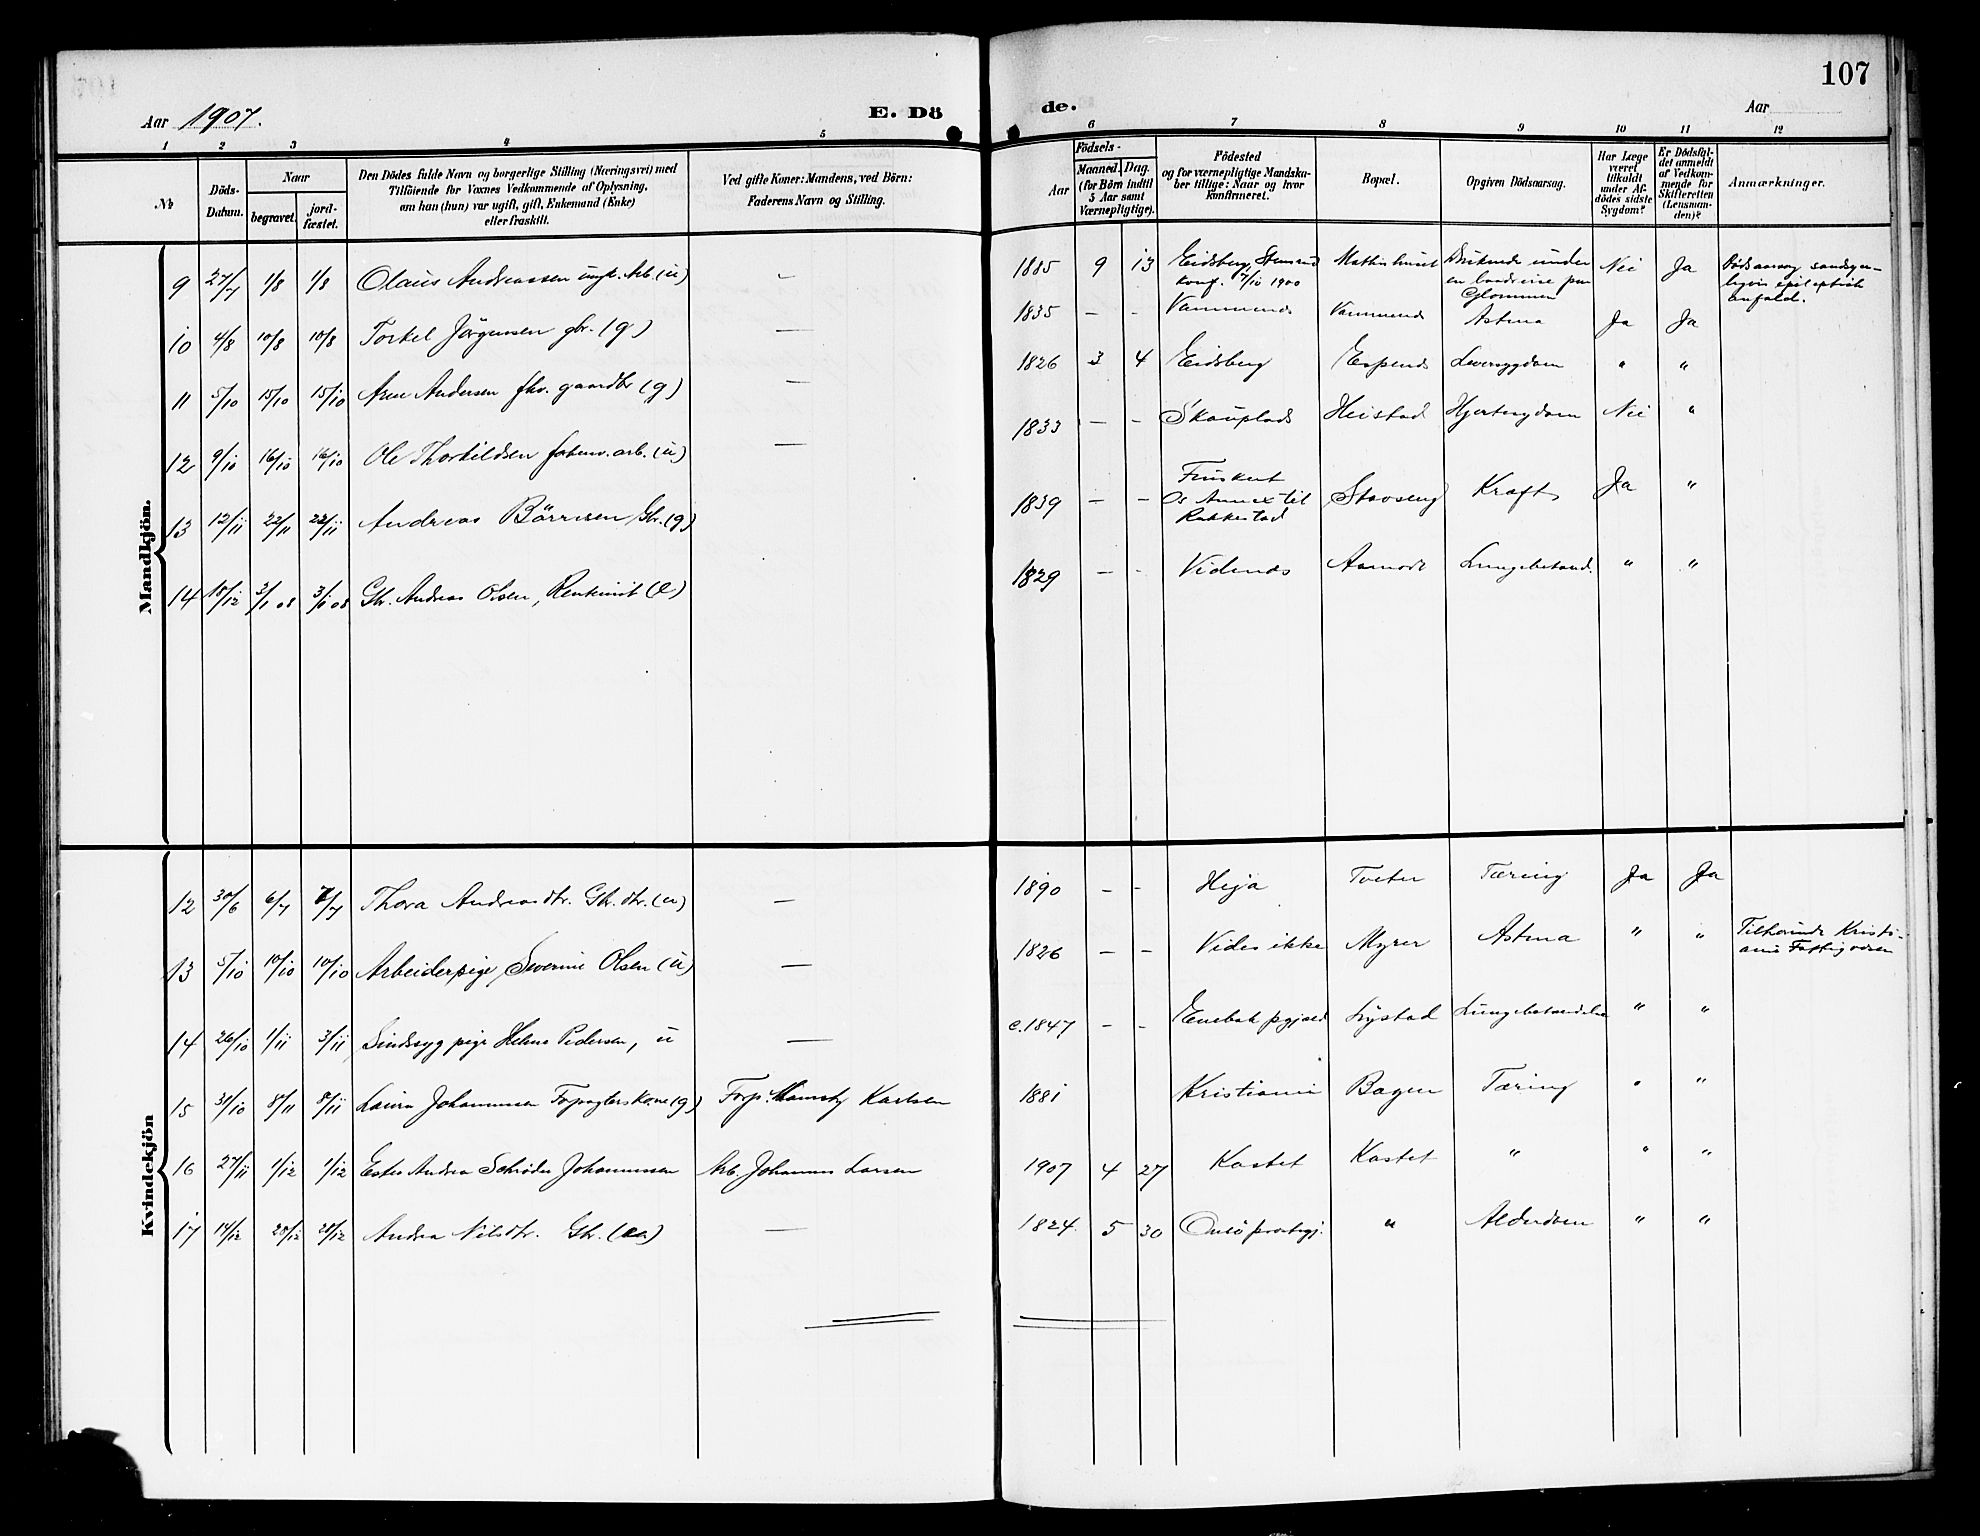 107
Aar 1907.
E. Dö
de.
Aar
1 2 3 4 5
6 7 8 9 10 11 12
№
Döds-
Datum.
Naar
begravet.
jord-
fæstet.
Den Dödes fulde Navn og borgerlige Stilling (Næringsvei) med
Tilföiende for Voxnes Vedkommende af Oplysning,
om han (hun) var ugift, gift, Enkemand (Enke)
eller fraskilt.
Ved gifte Koner: Mandens, ved Börn:
Faderens Navn og Stilling.
Födsels-
Aar
Maaned. Dag.
(for Börn indtil
5 Aar samt
Værnepligtige).
Födested
og for værnepligtige Mandska-
ber tillige: Naar og hvor
konfirmeret.
Bopæl.
Opgiven Dödsaarsag.
Har Læge
været
tilkaldt
under Af-
dödes sidste
Sygdom?
Er Dödsfal-
det anmeldt
af Vedkom-
mende for
Skifteretten
(Lensman-
den)?
Anmærkninger.
Mandkjön.
9 27/7 1/8 1/8 Olaus Andreassen ungk. Arb. (u) — 1885 9 13 Eidsberg,
konf. 7/10 1900
Nei Ja
en baadreise paa
Glommen
anfald.
10 4/8 10/8 10/8 Torkel Jörgensen gbr. (g) — 1835 — - Astma Ja Ja
11 5/10 15/10 15/10 Aren Andersen fhv. gaardbr (g) — 1826 3 4 Eidsberg Espenes Leversygdom " "
12 9/10 16/10 16/10 Ole Thorkildsen arb. (u) — 1833 — - Skauplads Heistad Hjertesygdom Nei "
13 12/11 22/11 22/11 Andreas Börresen Gbr. (g) 1839 — —
Os Annex til
Rakkestad
Kræft Ja "
14 18/12 3/1 08 3/1 08 Gbr. Andreas Olsen, (e) 1829 — - Lungebetænd. " "
Kvindekjön
12 30/6 6/7 7/7 Thora Andreasdtr. Gbr. dtr. (u) — 1890 — - Heja Tveter Tæring Ja Ja
13 5/10 10/10 10/10 Arbeiderpige Severine Olsen (u) — 1826 — - Vides ikke Myrer Astma " "
14 26/10 1/11 3/11 Sindssyg pige Helene Pedersen, u — c. 1847 - - Enebak Lystad Lungebetændelse " "
15 31/10 8/11 8/11 Laura Johannessen Forpagterskone (g) Forp. Karlsen 1881 Kristiania Bagen Tæring " "
16 27/11 1/12 1/12 Ester Andrea Schröder Johannessen Arb. Johannes Larsen 1907 4 27 Kastet Kastet " " "
17 14/12 28/12 28/12 Andrea Nilsdtr. Gbr. — 1824. 5 30 " Alderdom " "